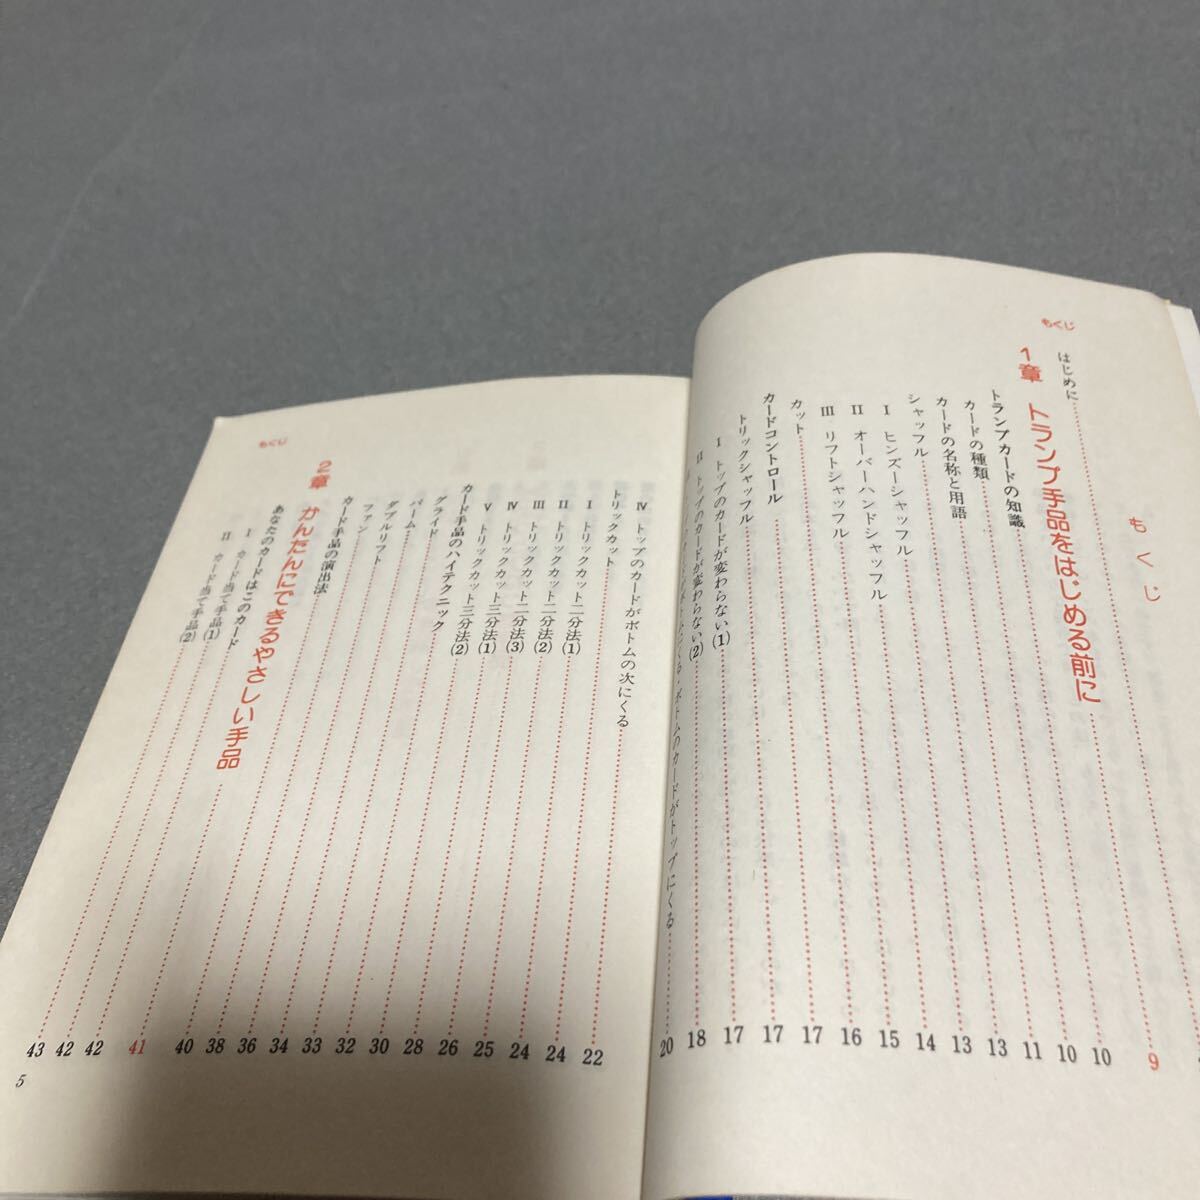 もくじ
もくじ
はじめに
1章 トランプ手品をはじめる前に 9
トランプカードの知識 10
カードの種類 10
カードの名称と用語 11
シャッフル 13
Ⅰ ヒンズーシャッフル 13
Ⅱ オーバーハンドシャッフル 14
Ⅲ リフトシャッフル 15
カット 16
カードコントロール 17
トリックシャッフル 17
Ⅰ トップのカードが変わらない(1) 17
Ⅱ トップのカードが変わらない(2) 18
ボトムにくる・ボトムのカードがトップにくる 20
Ⅳ トップのカードがボトムの次にくる 22
トリックカット 24
Ⅰ トリックカット二分法(1) 24
Ⅱ トリックカット二分法(2) 25
Ⅲ トリックカット二分法(3) 26
Ⅳ トリックカット三分法(1) 28
Ⅴ トリックカット三分法(2) 30
カード手品のハイテクニック 32
グライド 33
パーム 34
ダブルリフト 36
ファン 38
カード手品の演出法 40
2章 かんたんにできるやさしい手品 41
あなたのカードはこのカード 42
Ⅰ カード当て手品(1) 42
Ⅱ カード当て手品(2) 43
もくじ
5